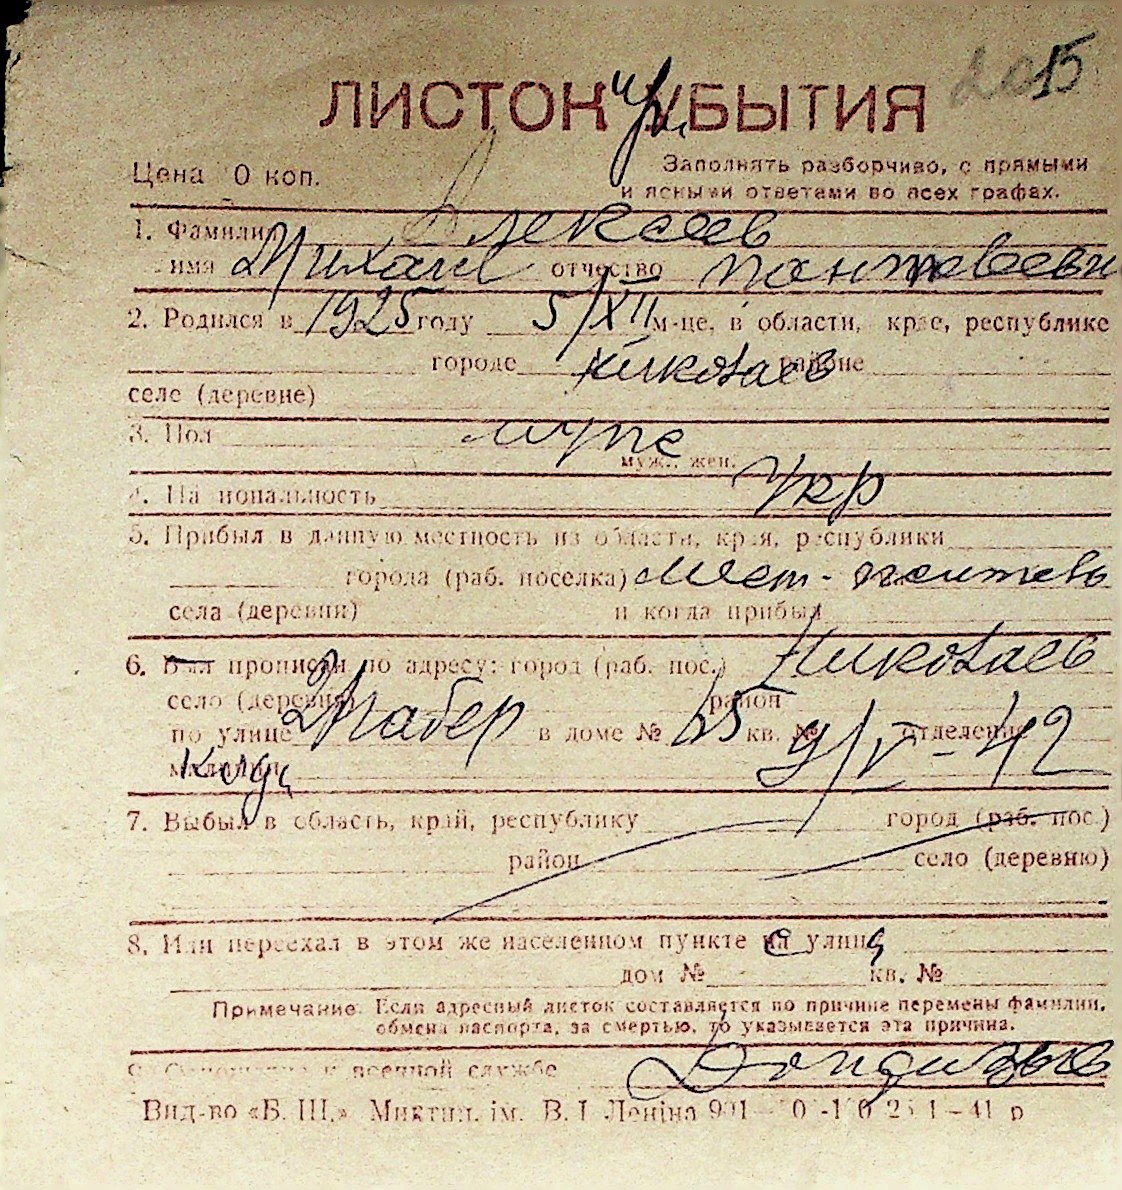 2015
ЛИСТОК УБЫТИЯ
Цена 0 коп.
Заполнять разборчиво, с прямыми
и ясными ответами во всех графах.
1. Фамилия Алексеев
имя Михаил отчество Пантелеевич
2. Родился в 1925 году 5/XII м-це, в области, крае, республике
городе Николаев районе
селе (деревне)
3. Пол муж
муж., жен.
4. Национальность Укр
5. Прибыл в данную местность из области, края, республики
города (раб. поселка) Мест. житель
села (деревни) и когда прибыл
6. Был прописан по адресу: город (раб. пос.) Николаев
село (деревня) район
по улице в доме № 65 кв. № 9/V-42 отделение
милиции
7. Выбыл в область, край, республику город (раб. пос.)
район село (деревню)
8. Или переехал в этом же населенном пункте на улицу
дом № кв. №
Примечание: Если адресный листок составляется по причине перемены фамилии,
обмена паспорта, за смертью, то указывается эта причина.
9. Отношение к военной службе
Вид-во «Б. Ш.» Миктип. ім. В. І Леніна